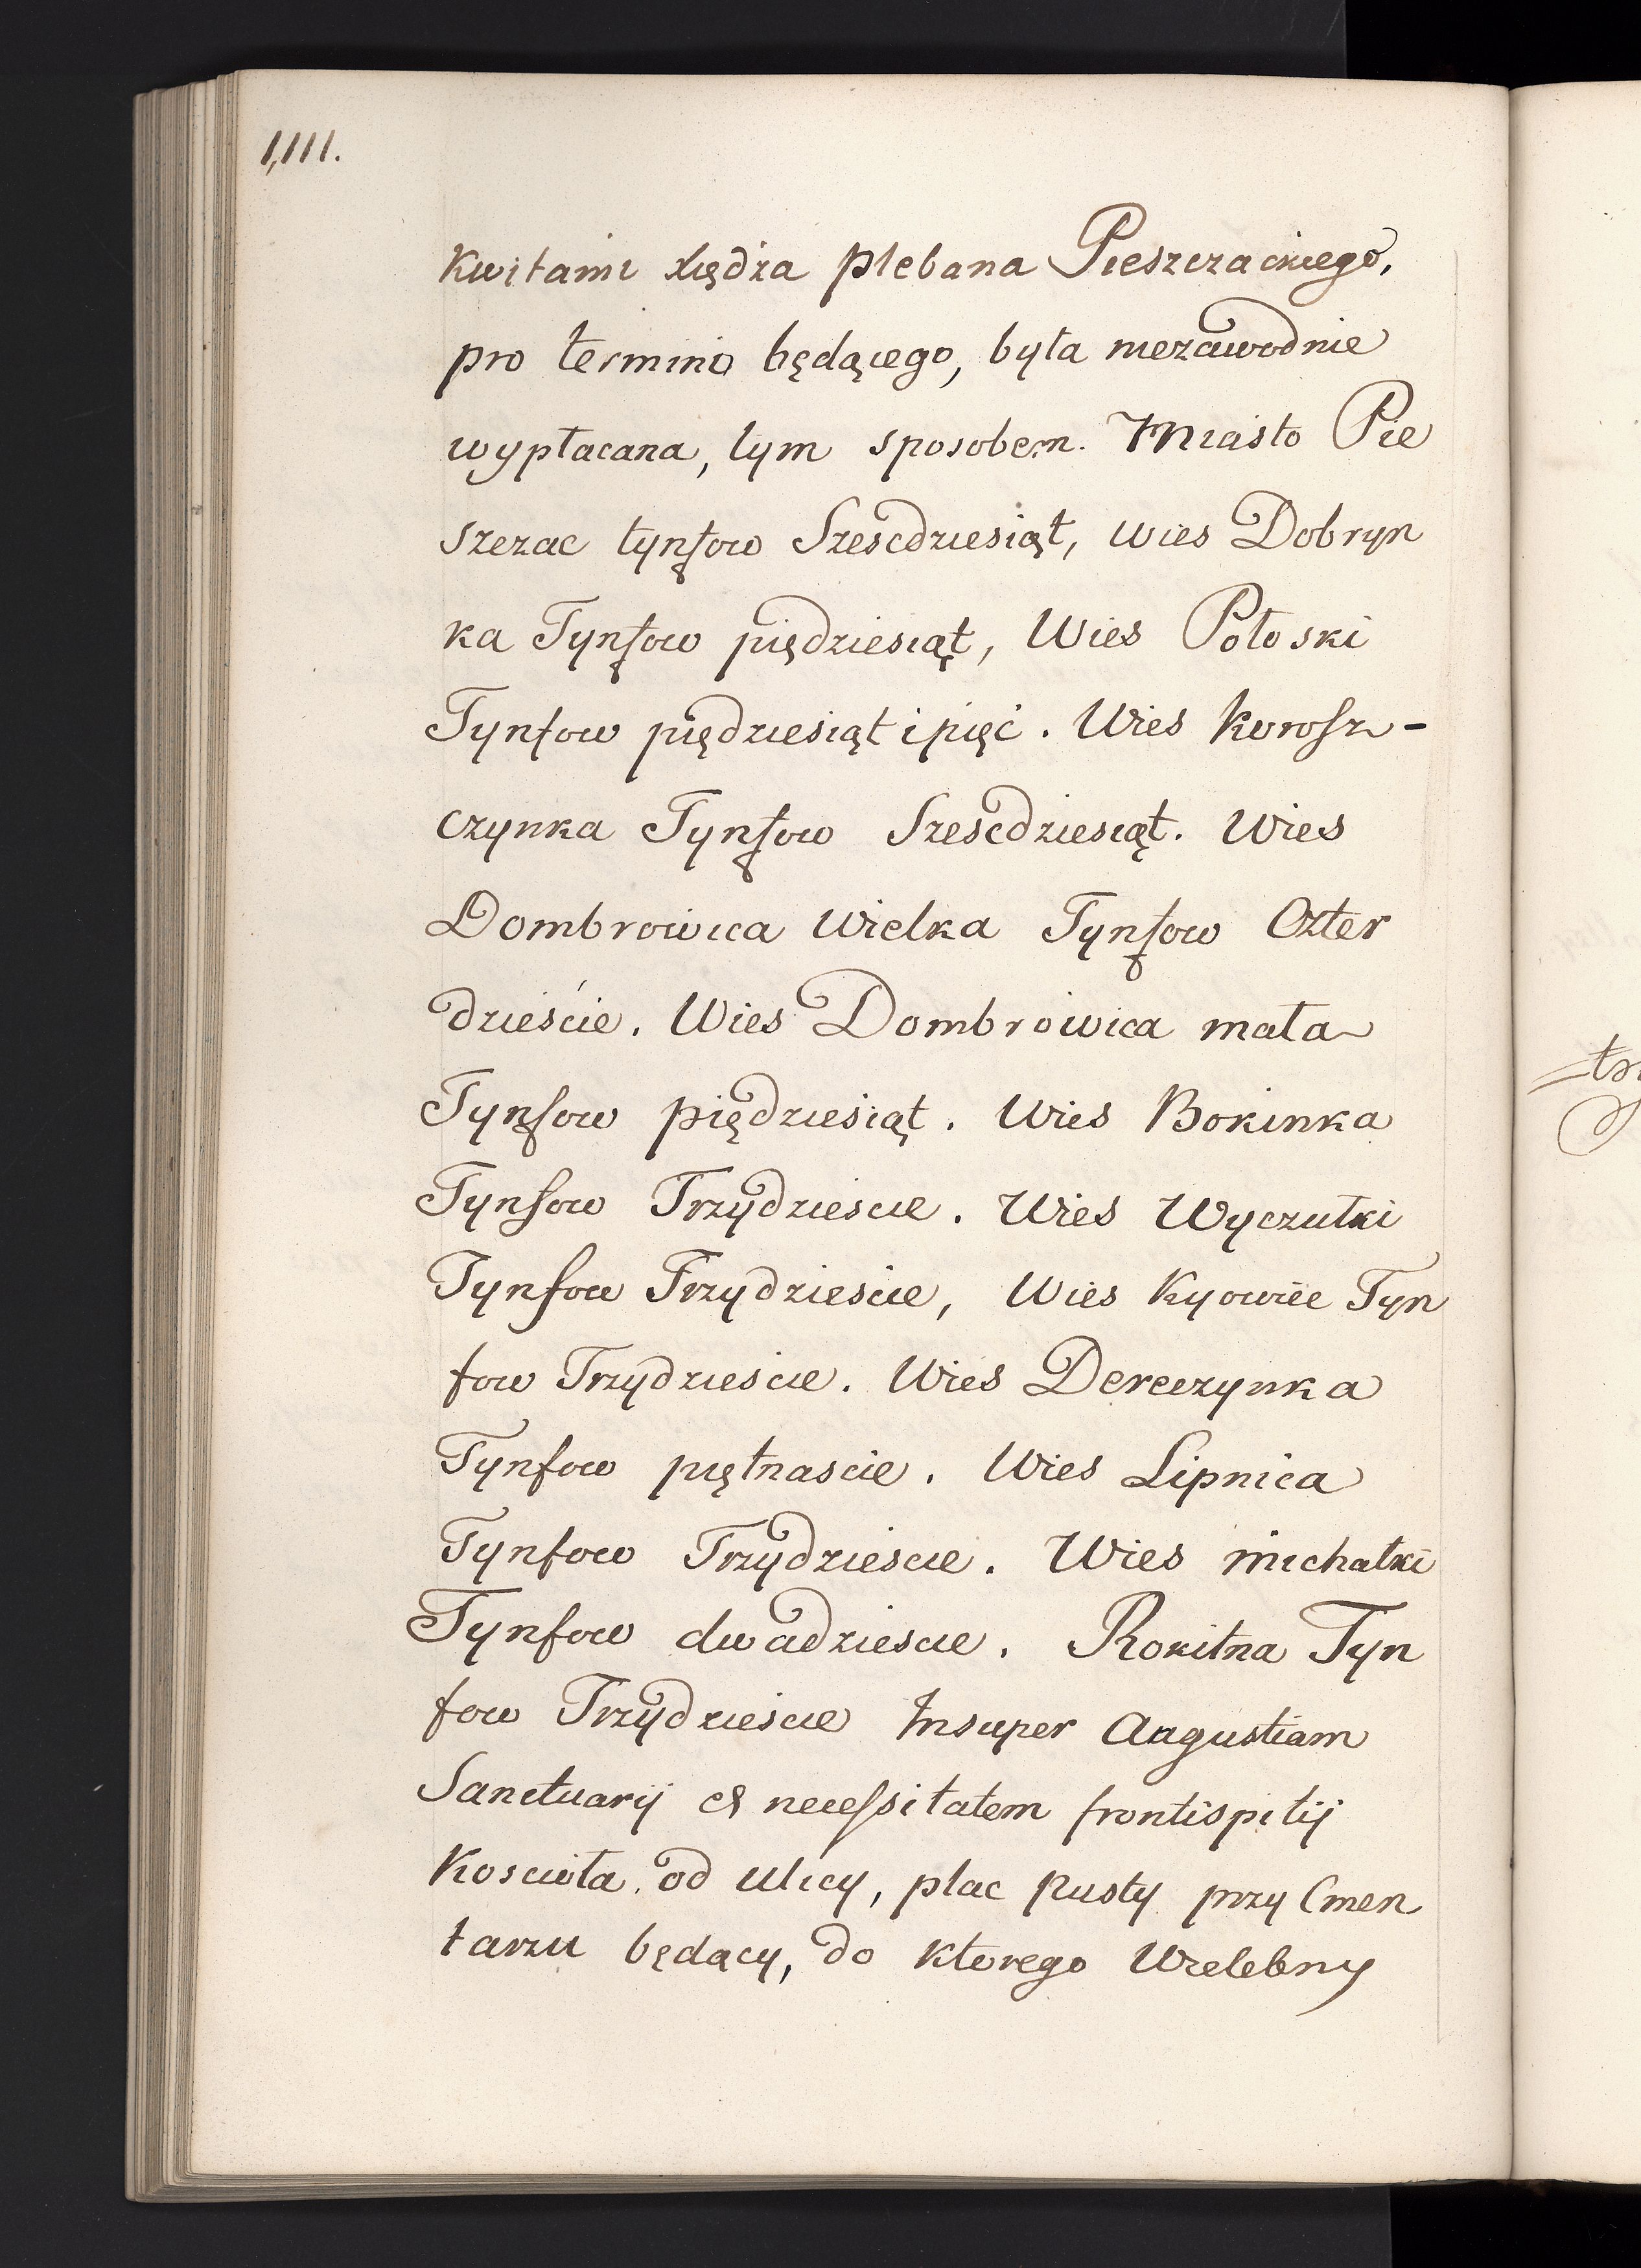 1,111.
kwitami xiędza plebana Pieszczackiego,
pro termino będącego, była niezawodnie
wypłacana, tym sposobem. Miasto Pie
szczac tynfow Szescdziesiąt, Wies Dobryn
ka Tynfow piędziesiąt, Wies Połoski
Tynfow piędziesiąt i pięć. Wies Korosz-
czynka Tynfow Szescdziesiąt. Wies
Dombrowica Wielka Tynfow Czter
dzieście. Wies Dombrowica mała
Tynfow piędziesiąt. Wies Bokinka
Tynfow Trzydzieście. Wies Wyczułki
Tynfow Trzydzieście, Wies Kyowiec Tyn
fow Trzydzieście. Wies Dereczynka
Tynfow piętnascie. Wies Lipnica
Tynfow Trzydziescie. Wies michałki
Tynfow dwadziescie. Rokitna Tyn
fow Trzydzieście Insuper Angustiam
Sanctuarij et necessitatem frontispitij
Koscioła od Ulicy, plac Pusty przy Cmen
tarzu będący, do ktorego Wielebny